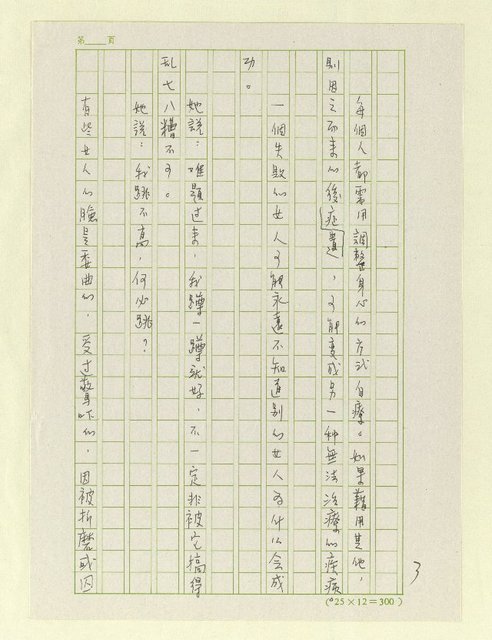 第 頁
3
每個人都需用調整身心的方式自療。如果藉用其他，
則因之而來的後遺症，可能變成另一種無法治療的疾病
一個失敗的女人可能永遠不知道別的女人為什么会成
功。
她說：难題过来，我蹲一蹲就好，不一定非被它搞得
乱七八糟不可。
她說：我跳不高，何必跳？
有些女人的臉是委曲的，受过驚吓的，因被折磨或因
(25×12=300)